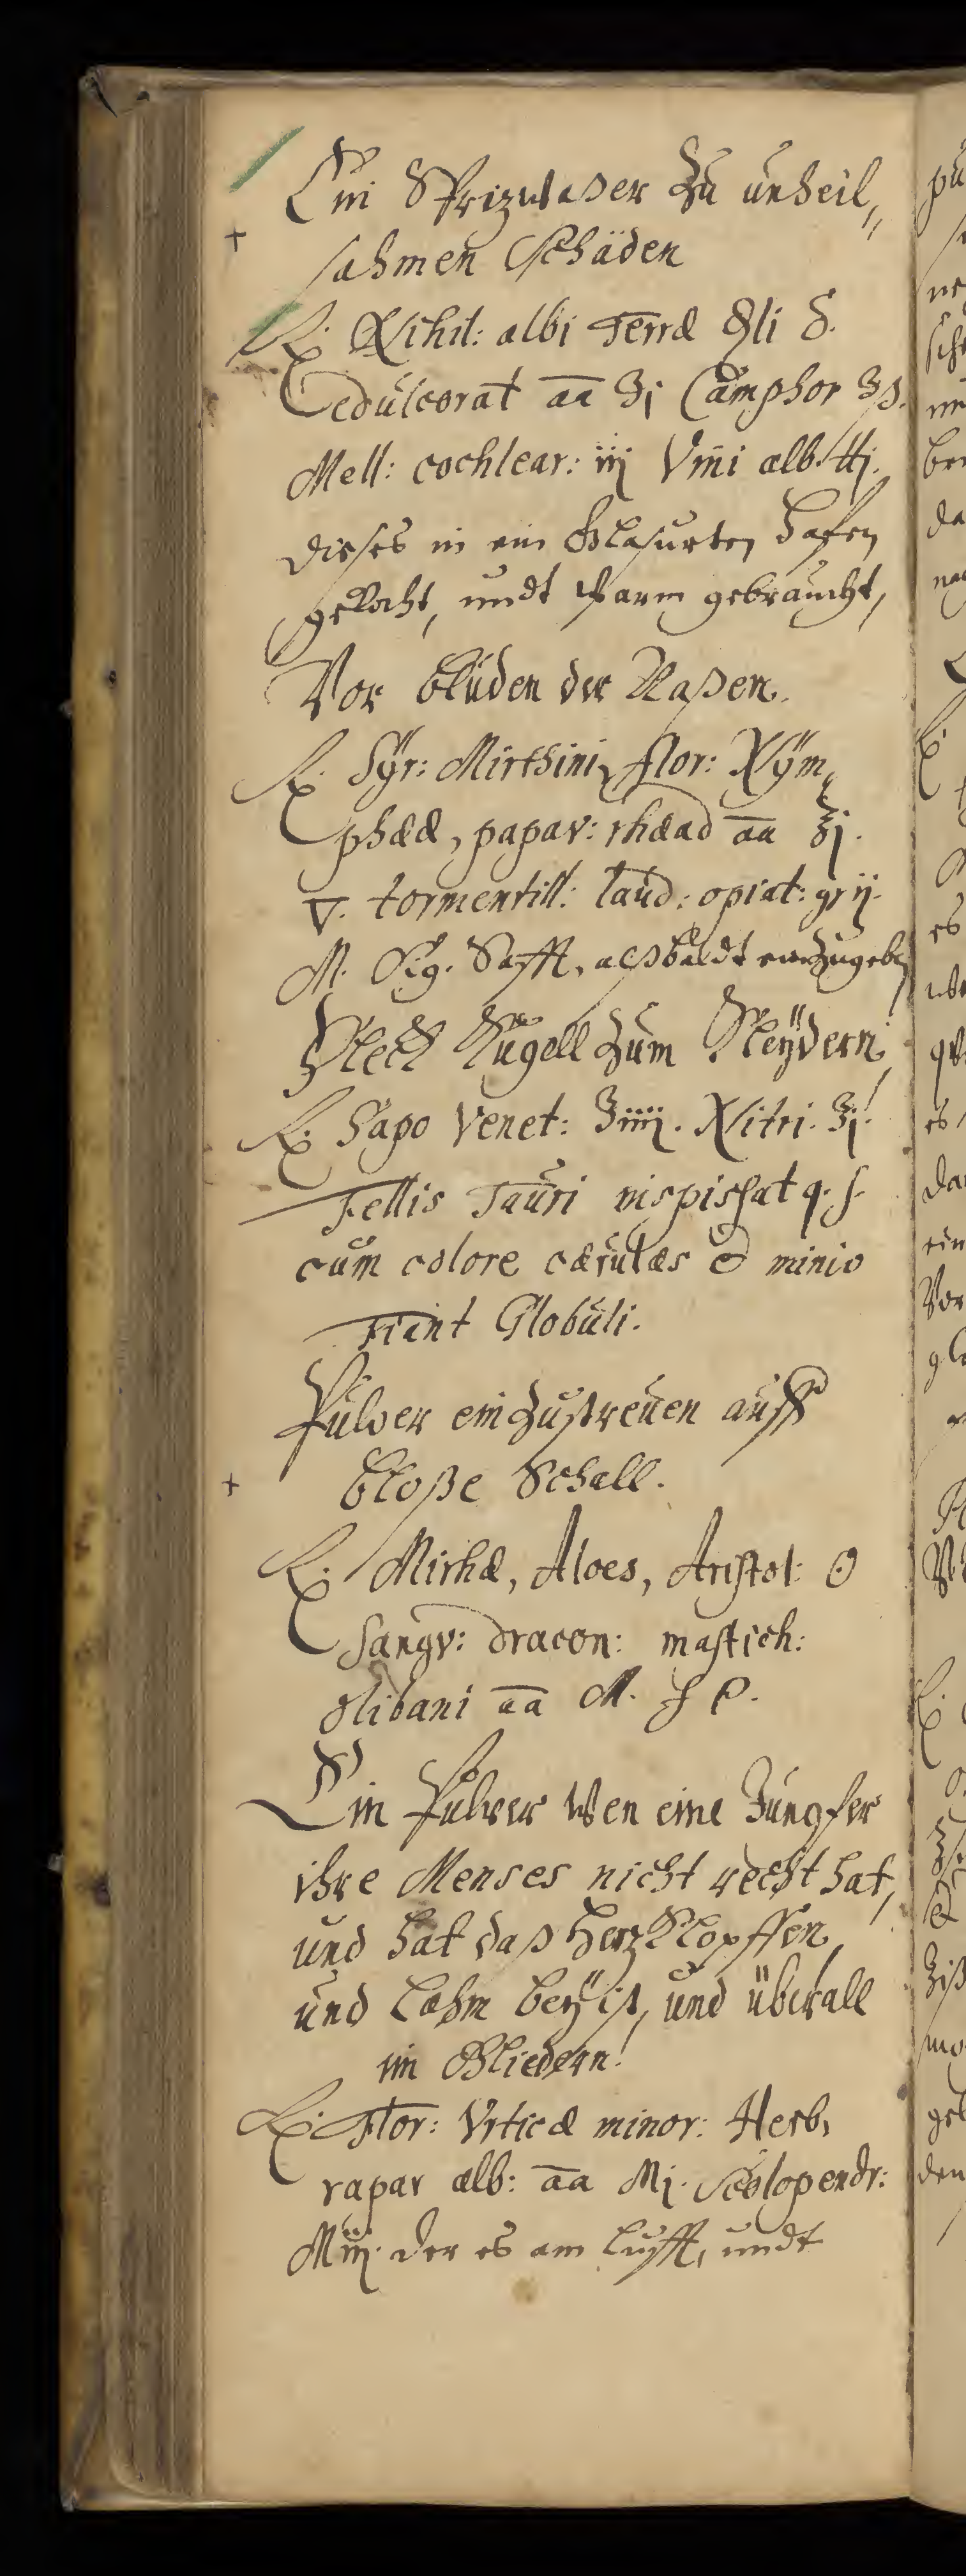 Ein Sprizwaßer zu unheil„
sahmen Schäden
℞. Nihil: albi Terræ
Edulcorat aa ʒj Camphor ʒß.
Mell: cochlear: iij Vini alb. ℔j.
dieses in ein Glasurten Hafen
gekocht, undt warm gebraucht,
Vor blüden der Naßen.
℞. Sÿr: Mirthini, flor: Nÿm„
phææ, papav: rhæad aa ℥j.
▽. tormentill: laud: opiat: gr ij.
M. Sig. Safft, alßbaldt einzugeben
Fleck Kugell zum Kleÿdern
℞. Sapo Venet: ℥iiij. Nitri. ℥j.
Fellis Tauri inspissat q. s.
cum colore cærulæs & minio
Fiant Globuli.
Pulver einzustreüen auff
bloße Schall.
℞. Mirhæ, Aloes, Aristol: ʘ
Sangv: dracon: mastich:
Olibani aa M. f P.
Ein Pulver Wen eine Jungfer
ihre Menses nicht recht hat,
und hat daß Herz Klopffen,
und Lahm beÿ ist, und überall
im Gliedern!
℞. Flor: Vrticæ minor: Herb,
rapar alb: aa Mj. Scolopendr:
Miij. der es am Lufft, undt